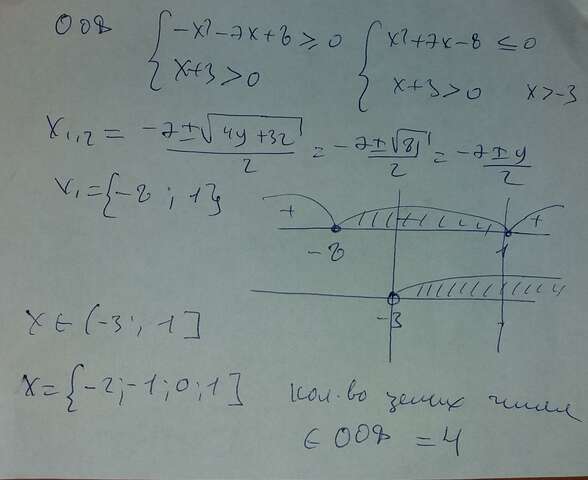 ООФ { -x²-7x+8 ≥ 0 { x²+7x-8 ≤ 0
x+3>0 x+3>0 x>-3
x₁,₂ = (-7±√(49+32))/2 = (-7±√81)/2 = (-7±9)/2
x₁={-8; 1}
+ + +
-8 1
-3
x∈(-3; 1]
x={-2;-1;0;1] кол-во целых чисел
∈ ООФ = 4